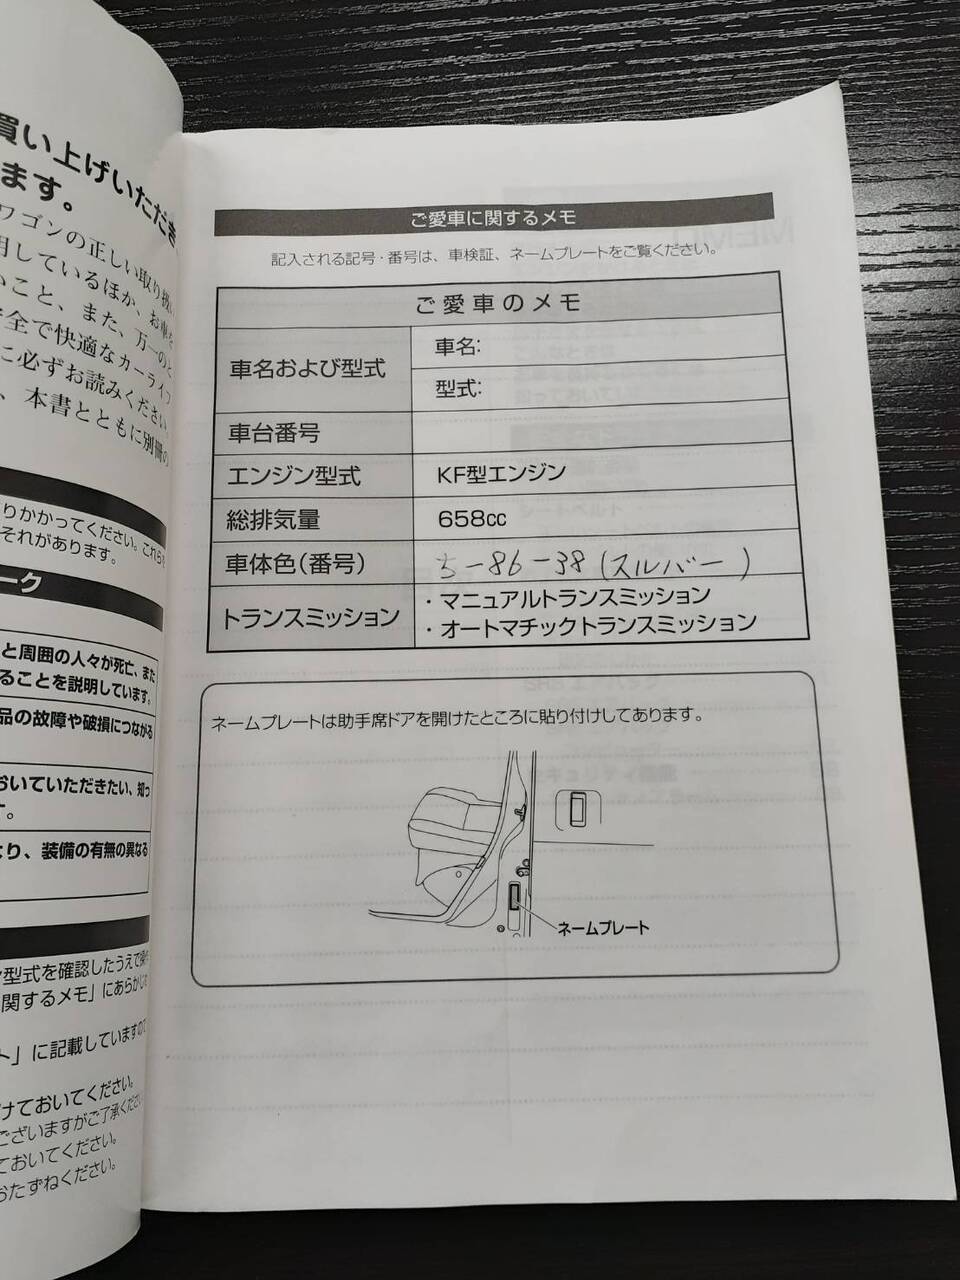 買い上げいただき
ます。
ワゴンの正しい取り扱い
明しているほか、お車を
いこと、また、万一のと
安全で快適なカーライフ
に必ずお読みください。
、本書とともに別冊の
りかかってください。これらを
それがあります。
ーク
と周囲の人々が死亡、また
ることを説明しています。
品の故障や破損につながる
おいていただきたい、知っ
す。
より、装備の有無の異なる
型式を確認したうえで
関するメモ」にあらかじめ
ト」に記載していますので
けておいてください。
ございますがご了承ください
ておいてください。
おたずねください。
ご愛車に関するメモ
記入される記号・番号は、車検証、ネームプレートをご覧ください。
ご愛車のメモ
車名および型式
車名:
型式:
車台番号
エンジン型式 KF型エンジン
総排気量 658cc
車体色(番号) ち-86-38(スルバー)
トランスミッション
・マニュアルトランスミッション
・オートマチックトランスミッション
ネームプレートは助手席ドアを開けたところに貼り付けしてあります。
ネームプレート